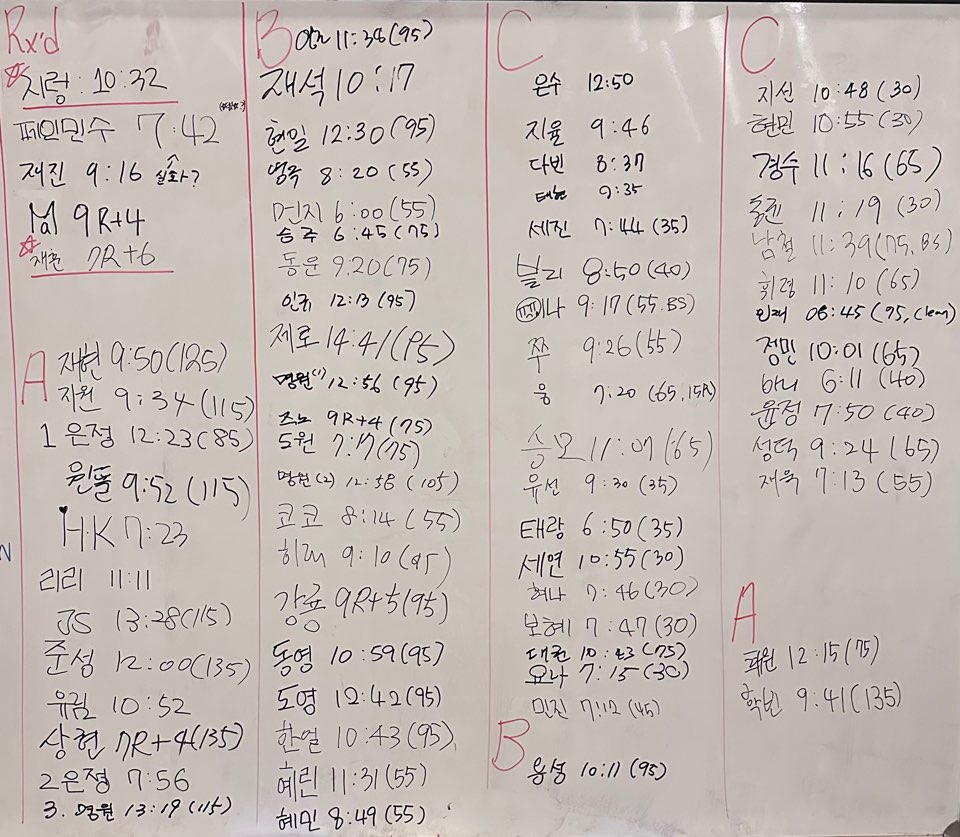 Rx'd
지렁 : 10:32
페인민수 7:42
재진 9:16 실화?
Ma 9R+4
재훈 7R+6
A
재현 9:50(125)
지원 9:34(115)
1 은정 12:23(85)
원돌 9:52(115)
H.K 7:23
리리 11:11
JS 13:28(115)
준성 12:00(135)
유림 10:52
상현 7R+4(135)
2 은정 7:56
3. 명원 13:19(115)
B
11:38(95)
재석 10:17
현일 12:30(95)
8:20(55)
먼지 6:00(55)
승주 6:45(75)
동운 9:20(75)
인규 12:13(95)
제로 14:41(95)
명원(1) 12:56(95)
즈노 9R+4(75)
도원 7:17(75)
명원(2) 12:58(105)
코코 8:14(55)
히래 9:10(95)
강룡 9R+5(95)
동영 10:59(95)
도영 12:42(95)
한얼 10:43(95)
혜린 11:31(55)
혜민 8:49(55)
C
은수 12:50
지율 9:46
다빈 8:37
태현 9:35
세진 7:44(35)
블리 8:50(40)
미나 9:17(55.BS)
쭈 9:26(55)
웅 7:20(65,15R)
승모 11:07(65)
유선 9:30(35)
태랑 6:50(35)
세연 10:55(30)
허나 7:46(30)
보혜 7:47(30)
대권 10:23(75)
요나 7:15(30)
민진 7:12(45)
B
용성 10:11(95)
C
지선 10:48(30)
현민 10:55(30)
경수 11:16(65)
11:19(30)
남철 11:39(75,BS)
휘령 11:10(65)
인재 08:45(75,clean)
정민 10:01(65)
하니 6:11(40)
윤정 7:50(40)
성덕 9:24(65)
재욱 7:13(55)
A
12:15(75)
학빈 9:41(135)